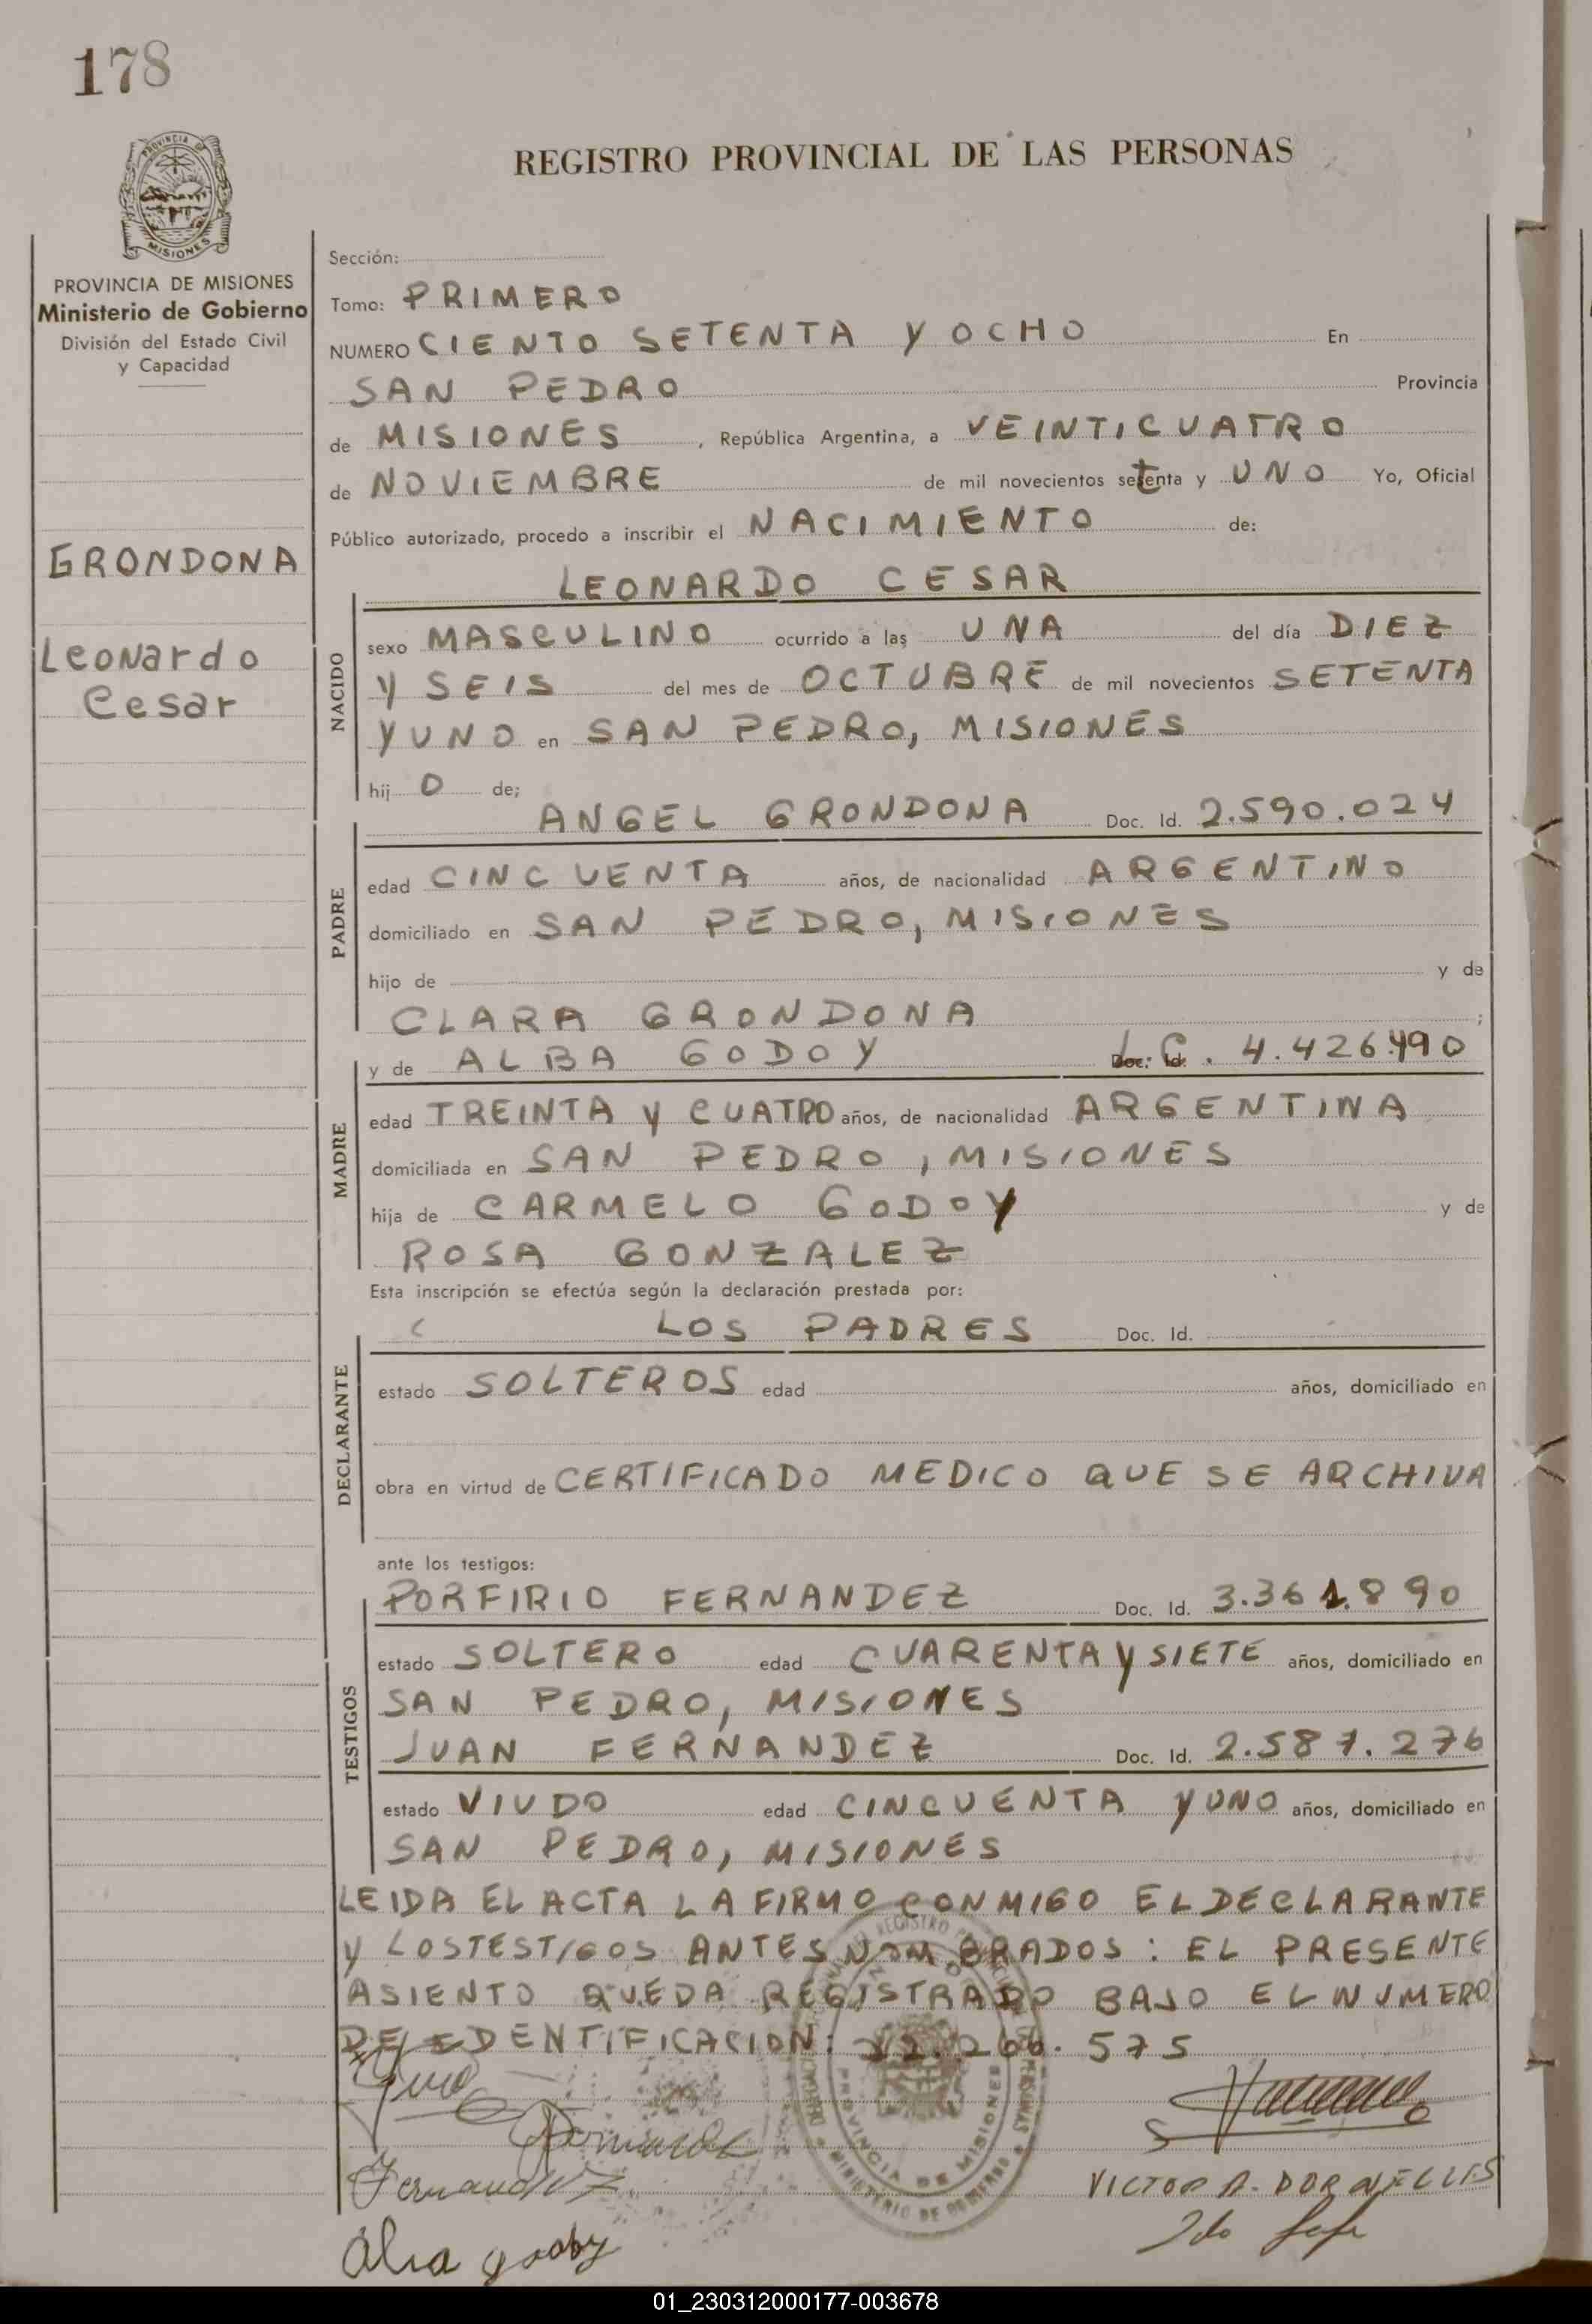 178
REGISTRO PROVINCIAL DE LAS PERSONAS
PROVINCIA DE MISIONES
PROVINCIA DE MISIONES
Ministerio de Gobierno
División del Estado Civil
y Capacidad
GRONDONA
Leonardo
Cesar
Sección:
Tomo: PRIMERO
NUMERO CIENTO SETENTA Y OCHO En
SAN PEDRO Provincia
de MISIONES , República Argentina, a VEINTICUATRO
de NOVIEMBRE de mil novecientos setenta y UNO Yo, Oficial
Público autorizado, procedo a inscribir el NACIMIENTO de:
LEONARDO CESAR
NACIDO
sexo MASCULINO ocurrido a las UNA del día DIEZ
Y SEIS del mes de OCTUBRE de mil novecientos SETENTA
Y UNO en SAN PEDRO, MISIONES
hij O de;
ANGEL GRONDONA Doc. Id. 2.590.024
PADRE
edad CINCUENTA años, de nacionalidad ARGENTINO
domiciliado en SAN PEDRO, MISIONES
hijo de y de
CLARA GRONDONA ;
y de ALBA GODOY Doc. Id. L.C. 4.426.490
MADRE
edad TREINTA Y CUATRO años, de nacionalidad ARGENTINA
domiciliada en SAN PEDRO, MISIONES
hija de CARMELO GODOY y de
ROSA GONZALEZ
Esta inscripción se efectúa según la declaración prestada por:
LOS PADRES Doc. Id.
DECLARANTE
estado SOLTEROS edad años, domiciliado en
obra en virtud de CERTIFICADO MEDICO QUE SE ARCHIVA
ante los testigos:
PORFIRIO FERNANDEZ Doc. Id. 3.361.890
TESTIGOS
estado SOLTERO edad CUARENTA Y SIETE años, domiciliado en
SAN PEDRO, MISIONES
JUAN FERNANDEZ Doc. Id. 2.587.276
estado VIUDO edad CINCUENTA Y UNO años, domiciliado en
SAN PEDRO, MISIONES
LEIDA EL ACTA LA FIRMO CONMIGO EL DECLARANTE
Y LOS TESTIGOS ANTES NOMBRADOS: EL PRESENTE
ASIENTO QUEDA REGISTRADO BAJO EL NUMERO
DE IDENTIFICACION: 22.266.575
PROVINCIA DE MISIONES
MINISTERIO DE GOBIERNO
Fernandez
VICTOR A. DORNELLIS
2do Jefe
Alva godoy
01_230312000177-003678